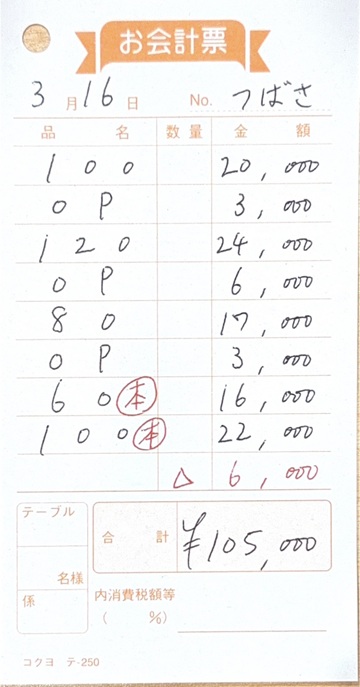 お会計票
3月16日 No. つばさ
品名 数量 金額
100 20,000
OP 3,000
120 24,000
OP 6,000
80 17,000
OP 3,000
60 本 16,000
100 本 22,000
△ 6,000
テーブル 合計 ¥105,000
名様
係 内消費税額等
( %)
コクヨ テ-250